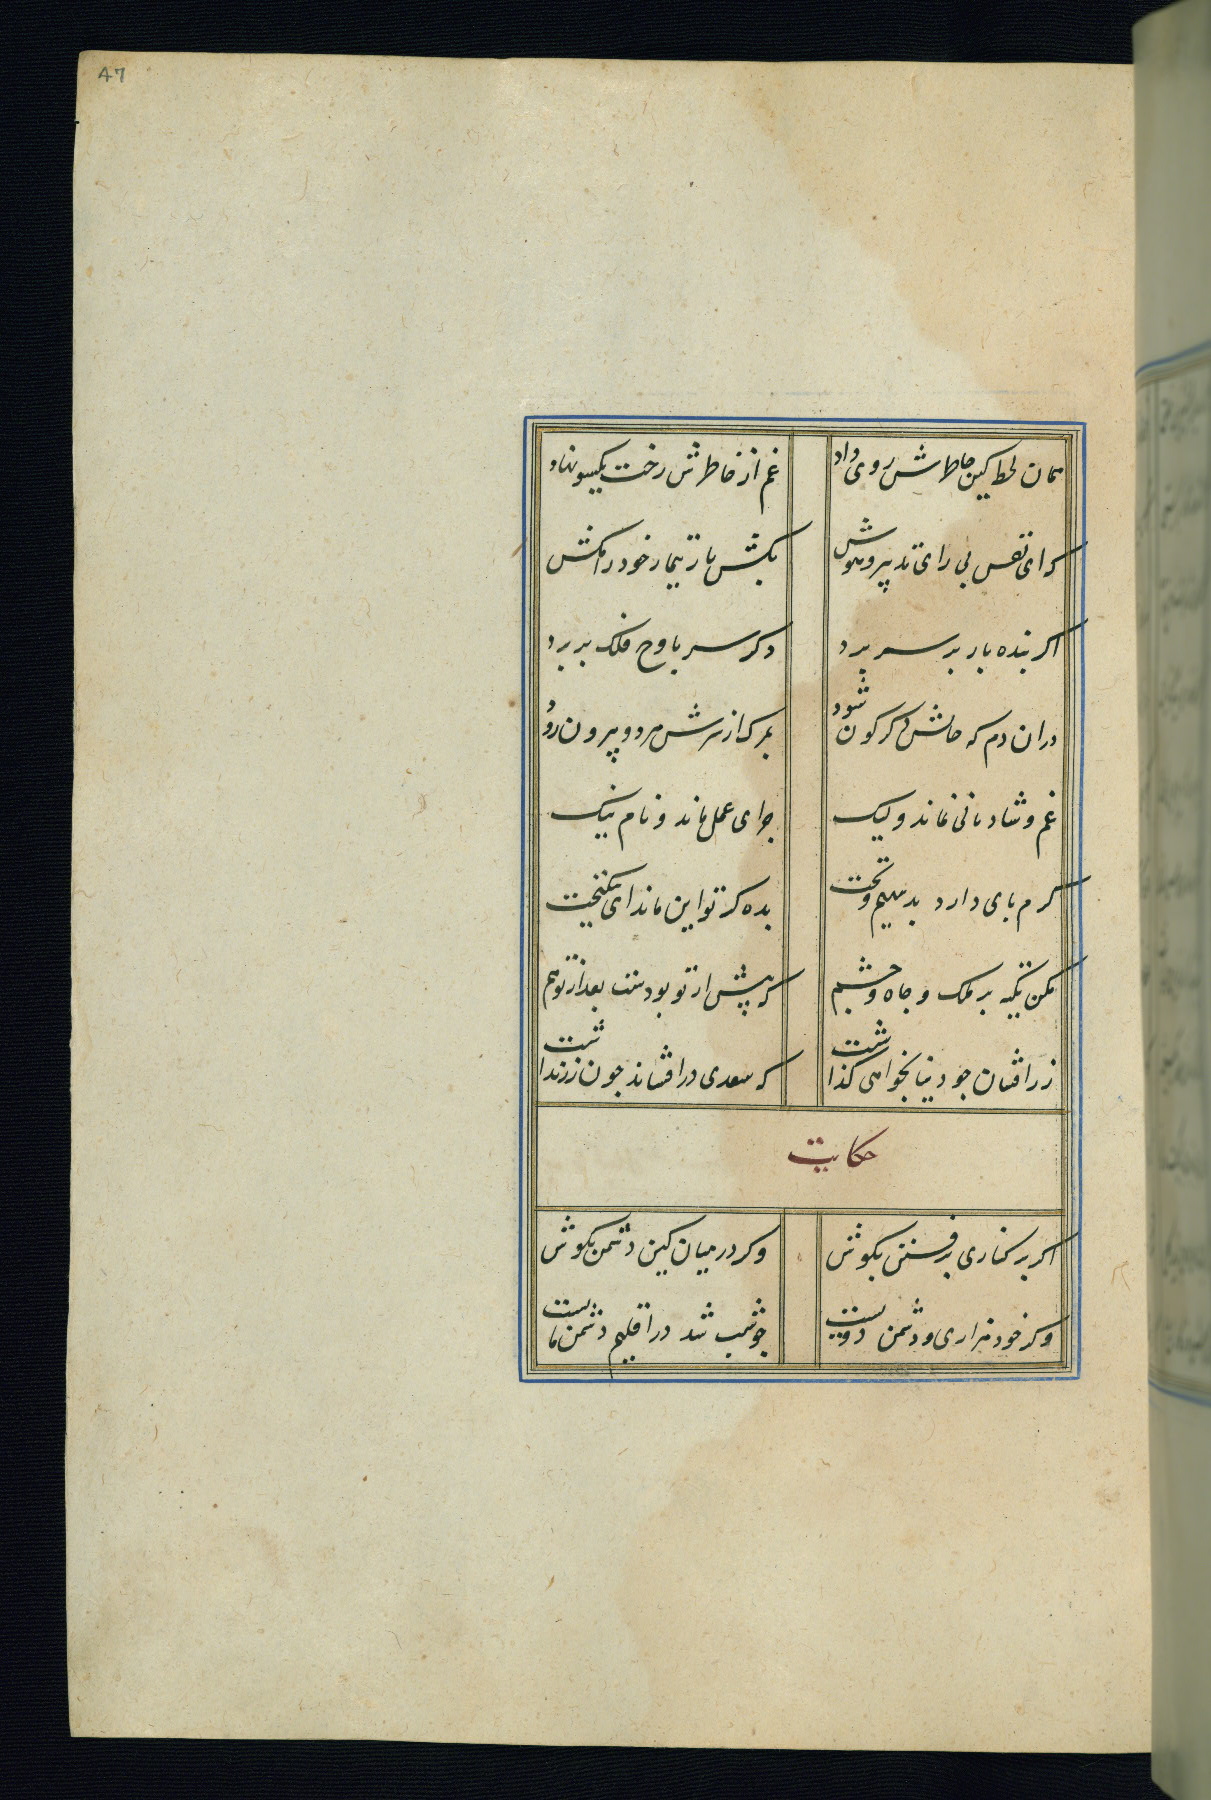 47
همان لحظه کین خاطرش روی داد غم از خاطرش رخت یکسو نهاد
که ای نفس بی رای تدبیر و هوش بکش بار تیمار خود را مکش
اگر بنده بار بر سر برد و کر سر باوج فلک بر برد
دران دم که حالش دکرکون شود بمرک از سرش هر دو بیرون رود
غم و شادمانی نماند ولیک جزای عمل ماند و نام نیک
کرم پای دارد نه دیهیم و تخت بده کز تو این ماند ای نیکبخت
مکن تکیه بر ملک و جاه و حشم که پیش از تو بودست بعد از تو هم
زر افشان چو دنیا بخواهی کذاشت که سعدی در افشاند چون زر نداشت
حکایت
اکر بر کناری برفتن بکوش وکر در میان کین دشمن بکوش
وکر خود هزاری و دشمن دویست چو شب شد در اقلیم دشمن مایست